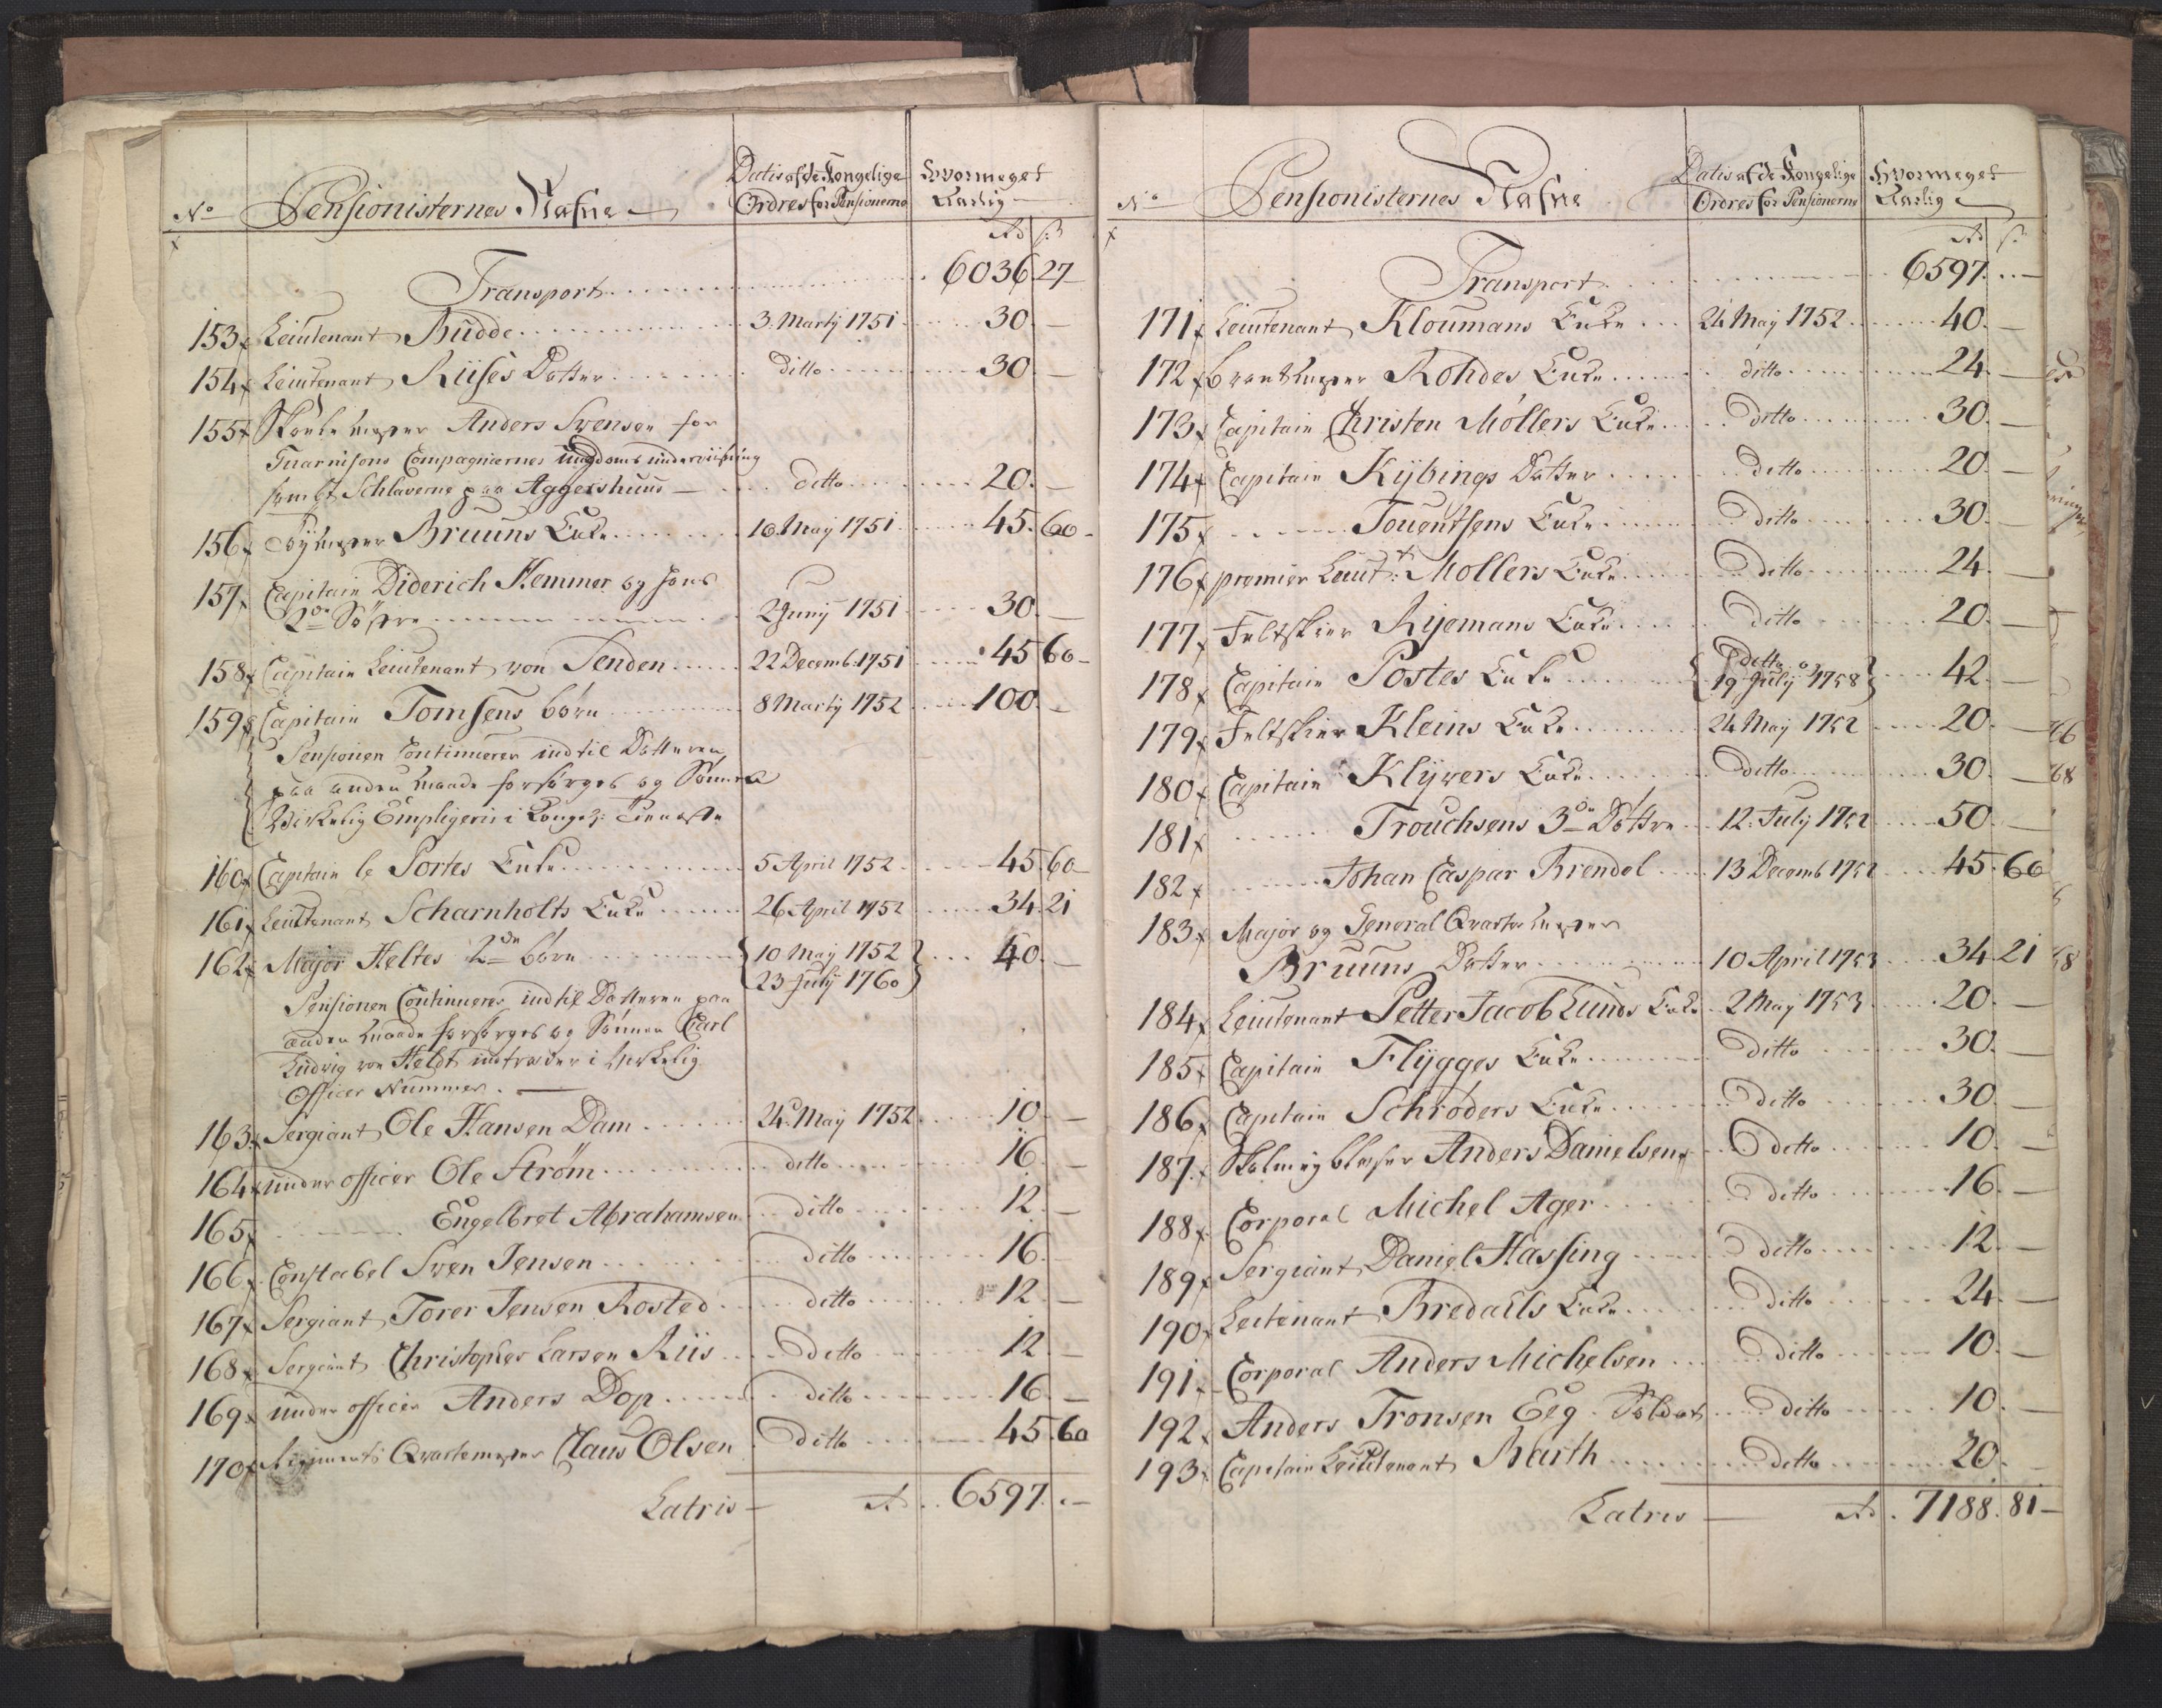 No Pensionisternes Nafne Datis af de Kongelige Ordres for Pensionerne Hvormeget Aarlig
Rd ſ
Transport 6036. 27
153 Leiutenant Budde 3. Martij 1751 30. —
154 Leiutenant Riises Datter ditto 30 —
155 Skoele mester Anders Svensen for
Guarnisons Compagniernes ungdoms underviisning
samt Schlaverne paa Aggershuus — ditto 20. —
156 Bÿemester Bruuns Enke 16 Maij 1751 45. 60
157 Capitain Diderich Hemmer og hans
2de Søstre 2 Junij 1751 30. —
158 Capitain Leiutenant von Senden 22 Decemb: 1751 45 60
159 Capitain Tomsens børn 8 Martij 1752 100. —
Pensionen Continuerer indtil Datteren
paa anden maade forsørges og Sønnen
Virkelig Emploijeris i Kongel: Tieneste
160 Capitain le Portes Enke 5 April 1752 45. 60
161 Leiutenant Scharnholts Enke 26 April 1752 34. 21
162 Major Heltes 2de børn 10 Maij 1752 40. —
23 Julij 1760
Pensionen Continueres indtil Datteren paa
anden maade forsørges og Sønnen Carl
Ludvig von Heldt indtræder i Virkelig
Officer Nummer. —
163 Sergiant Ole Hansen Dam 24. Maij 1752 10 —
164 under officer Ole Strøm ditto 16 —
165 Engelbret Abrahamsen ditto 12. —
166 Constabel Sven Jensen ditto 16.
167 Sergiant Torer Jensen Rosted ditto 12 —
168 Sergiant Christopher Larsen Riis ditto 12. —
169 under officer Anders Dop ditto 16. —
170 Regiments Qvartermester Claus Olsen ditto 45. 60
Latris — Rd. 6597. —
No Pensionisternes Nafne Datis af de Kongelige Ordres for Pensionerne Hvormeget Aarlig
Rd ſ
Transport 6597. —
171 Leiutenant Kloumans Enke 24 Maij 1752 40. —
172 Rohdes Enke ditto 24. —
173 Capitain Christen Møllers Enke ditto 30. —
174 Capitain Kÿbings Datter ditto 20. —
175 Touentsens Enke ditto 30. —
176 premier Leiut: Mollers Enke ditto 24. —
177 Feltskier Rijemans Enke ditto 20. —
178 Capitain Postes Enke ditto og 42. —
19 Julij 1758
179 Feltskier Kleins Enke 24 Maij 1752 20. —
180 Capitain Klÿvers Enke ditto 30. —
181 Trouchsens 3de Døttre 12. Julij 1752 50. —
182 Johan Caspar Brendel 13 Decemb 1752 45. 60
183 Major og General Qvarteermester
Bruuns Datter 10 April 1753 34. 21
184 Leiutenant Petter Jacob Lunds Enke 2 Maij 1753 20. —
185 Capitain Flÿgges Enke ditto 30. —
186 Capitain Schrøders Enke ditto 30. —
187 Skalmeyblæser Anders Danielsen ditto 10. —
188 Corporal Michel Ager ditto 16. —
189 Sergiant Daniel Hassing ditto 12. —
190 Leitenant Bredahls Enke ditto 24. —
191 Corporal Anders Michelsen ditto 10. —
192 Anders Tronsen Eeg. Soldat ditto 10. —
193 Capitain Leiutenant Barth ditto 20. —
Latris — Rd. 7188. 81